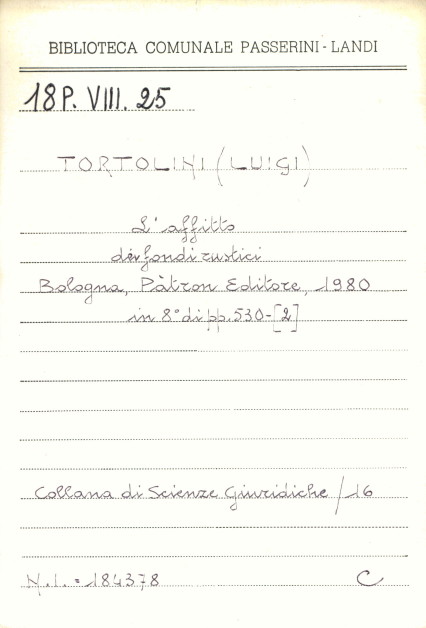 BIBLIOTECA COMUNALE PASSERINI-LANDI
18P. VIII. 25
TORTOLINI (LUIGI)
L'affitto
dei fondi rustici
Bologna, Pàtron Editore, 1980
in 8° di pp. 530-[2]
Collana di Scienze Giuridiche / 16
N.I. = 184378 C